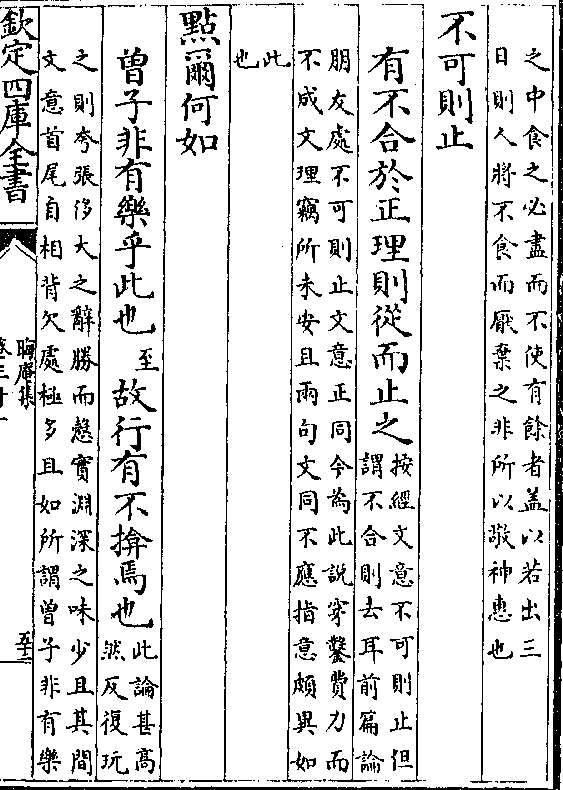 之中食之必盡而不使有餘者盖以若出三
日則人將不食而厭棄之非所以敬神惠也
不可則止
有不合於正理則從而止之
按經文意不可則止但
謂不合則去耳前篇論
朋友處不可則止文意正同今為此説穿鑿費力而
不成文理竊所未安且兩句文同不應指意頗異如
此
也
點爾何如
曾子非有樂乎此也至故行有不揜焉也
此論甚高
然反復玩
之則夸張侈大之辭勝而慤實淵深之味少且其間
文意首尾自相背欠處極多且如所謂曾子非有樂
欽定四庫全書
晦庵集
卷三十一